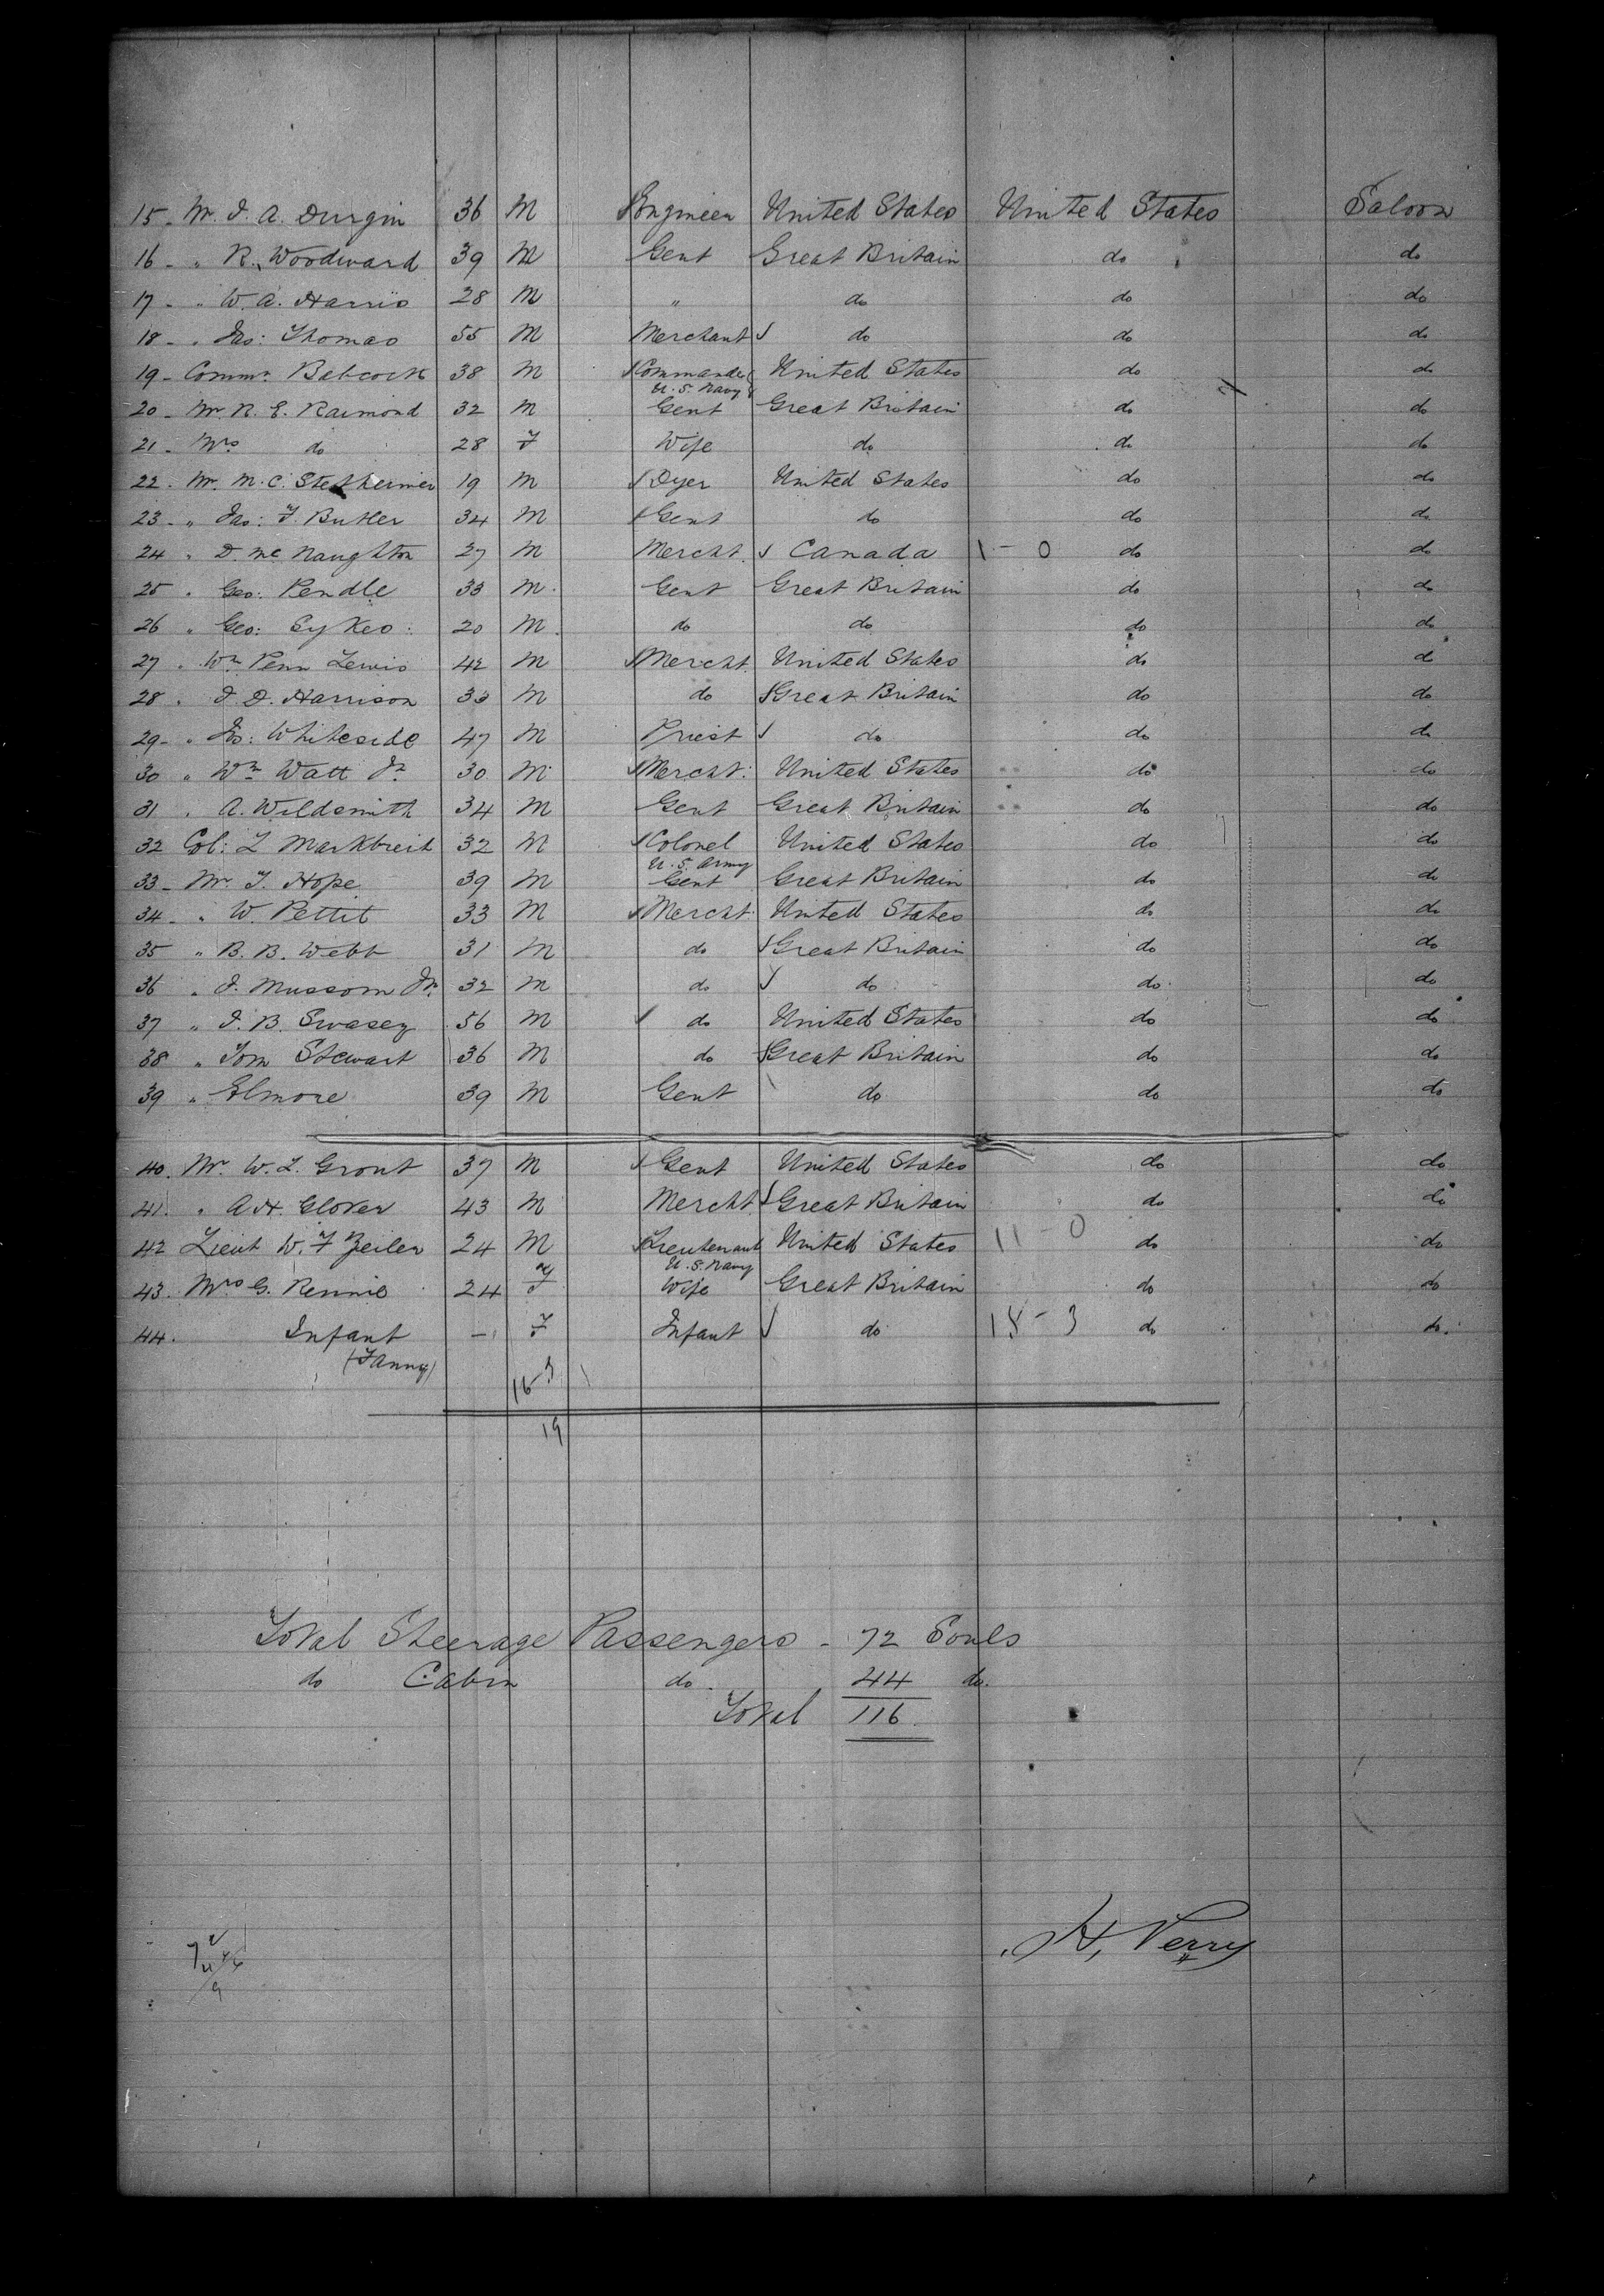 15 - Mr. J. A. Durgin 36 M Engineer United States United States Saloon
16 - " R. Woodward 39 M Gent Great Britain do do
17 - " W. A. Harris 28 M " do do do
18 - " Jas: Thomas 55 M Merchant do do do
19 - Commr. Babcock 38 M Commander United States do do
U. S. Navy
20 - Mr. R. E. Raimond 32 M Gent Great Britain do do
21 - Mrs do 28 F Wife do do do
22 - Mr. M. C. Stetheimer 19 M Dyer United States do do
23 - " Jas: F. Butler 34 M Gent do do do
24 " D. McNaughton 27 M Mercht. Canada 1 - 0 do do
25 " Geo: Pendle 33 M. Gent Great Britain do do
26 " Geo: Sykes: 20 M. do do do do
27 " Wm Penn Lewis 42 M Mercht United States do do
28 " J. D. Harrison 33 M do Great Britain do do
29 - " Jos: Whiteside 47 M Priest do do do
30 " Wm Watt Jr. 30 M Mercht: United States do do
31 " A. Wildsmith 34 M Gent Great Britain do do
32 Col: L Markbreit 32 M Colonel United States do do
U. S. Army
33 - Mr. T. Hope 39 M Gent Great Britain do do
34 - " W. Pettit 33 M Mercht United States do do
35 " B. B. Webb 31 M do Great Britain do do
36 " J. Mussom Jr. 32 M do do do do
37 " J. B. Swasey 56 M do United States do do
38 " Tom Stewart 36 M do Great Britain do do
39 " Elmore 39 M Gent do do do
40. Mr. W. L. Grout 37 M Gent United States do do
41. " A. H. Glover 43 M Mercht Great Britain do do
42 Lieut W. F Zeiler 24 M Lieutenant United States 11 - 0 do do
U. S. Navy
43. Mrs G. Rennie 24 F Wife Great Britain do do
44. Infant - F Infant do 18 - 3 do do.
(Fanny)
16-3
19
Total Steerage Passengers - 72 Souls
do Cabin do. 44 do.
Total 116.
H. Perry